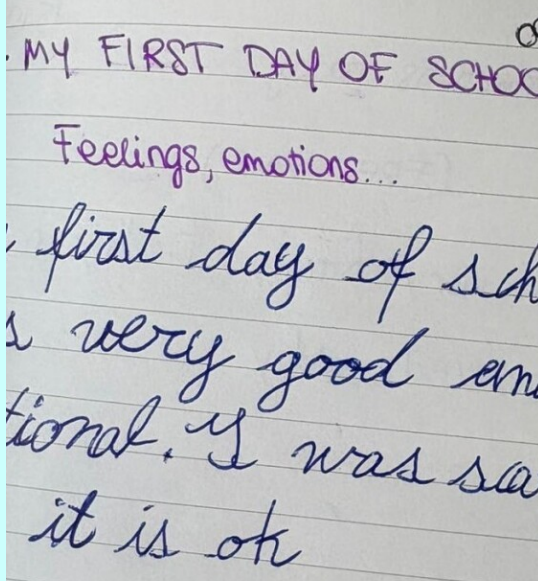 MY FIRST DAY OF SCHOO
Feelings, emotions...
first day of sch
s very good em
tional. I was sa
it is ok